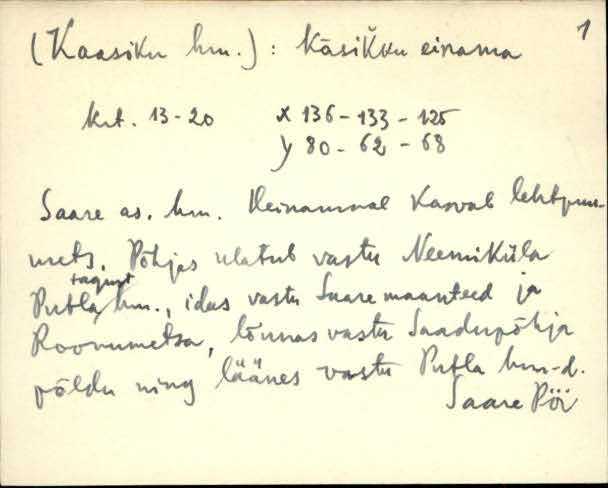 1
(Kaasiku hm.) : Kāsik̆ku einama
krt. 13-20 x 136-133-125
y 80-62-68
Saare as. hm. Heinamaal kasvab lehtpuu-
mets. Põhjas ulatub vastu Neemiküla
ragust
Putla hm., idas vastu Saare maanteed ja
Roonumetsa, lõunas vastu Saadupõhja
põldu ning läänes vastu Putla hm-d.
Saare Pöi